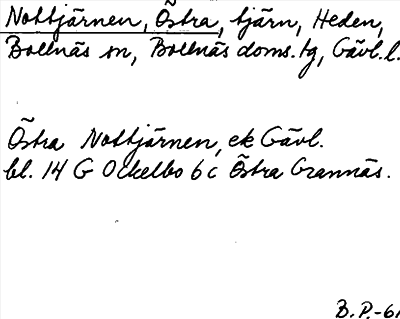 Nottjärnen, Östra, tjärn, Heden,
Bollnäs sn, Bollnäs doms.tg, Gävl.l.
Östra Nottjärnen, ek Gävl.
bl. 14 G Ockelbo 6 c Östra Grannäs.
B.P.-61